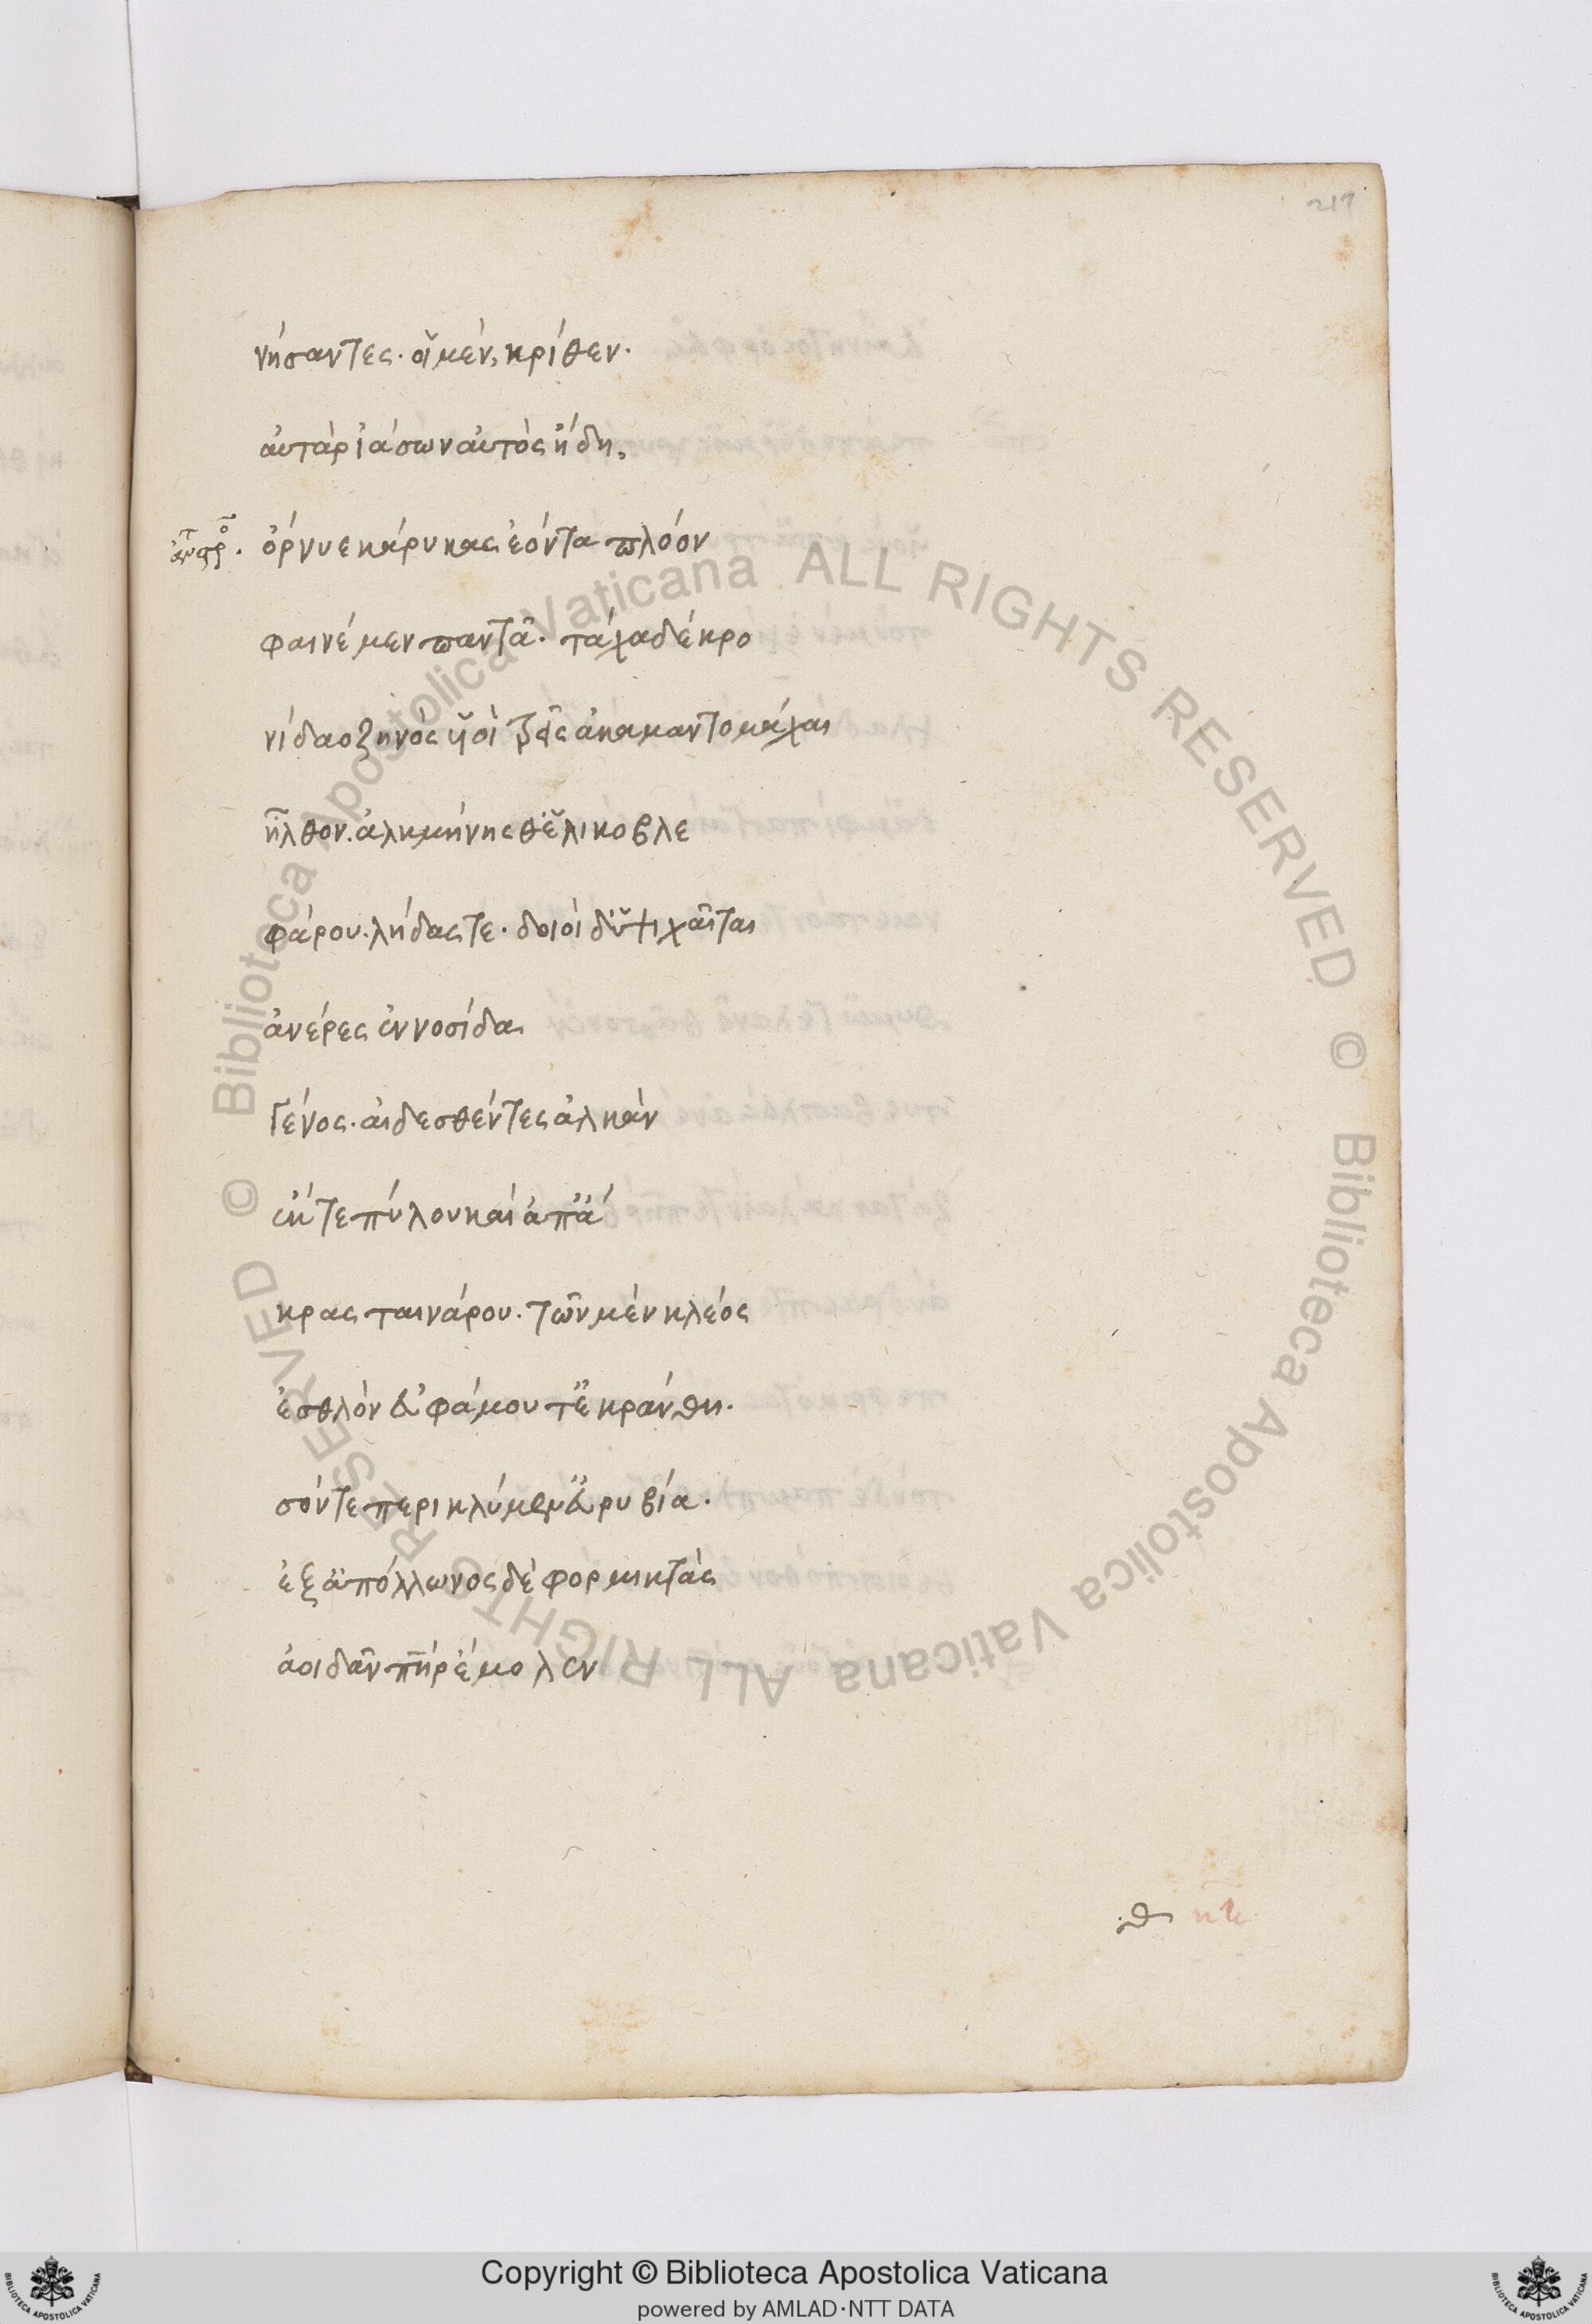 219
νήσαντες. οἵ μέν, κρίθεν.
αὐτὰρ ἰάσων αὐτὸς ἤδη,
ὄρνυε κάρυκας ἐόντα πλόον
φαινέμεν παντᾶ. τάχα δὲ κρο
νίδαο ζηνὸς υἱοὶ τρεῖς ἀκαμαντομάχαι
ἦλθον. ἀλκμήνης θ' ἑλικοβλε
φάρου. λήδας τε. δοιοὶ δ' ὑψιχαῖται
ἀνέρες ἐννοσίδα
γένος. αἰδεσθέντες ἀλκὰν
ἔκ τε πύλου καὶ ἀπ' ἄ
κρας ταινάρου. τῶν μὲν κλέος
ἐσθλὸν εὐφάμου τ' ἐκράνθη.
σόν τε περικλύμεν' εὐρυβία.
ἐξ ἀπόλλωνος δὲ φορμικτὰς
ἀοιδᾶν πῆρ ἔμολεν
Copyright © Biblioteca Apostolica Vaticana
powered by AMLAD·NTT DATA
© Biblioteca Apostolica Vaticana ALL RIGHTS RESERVED
© Biblioteca Apostolica Vaticana ALL RIGHTS RESERVED